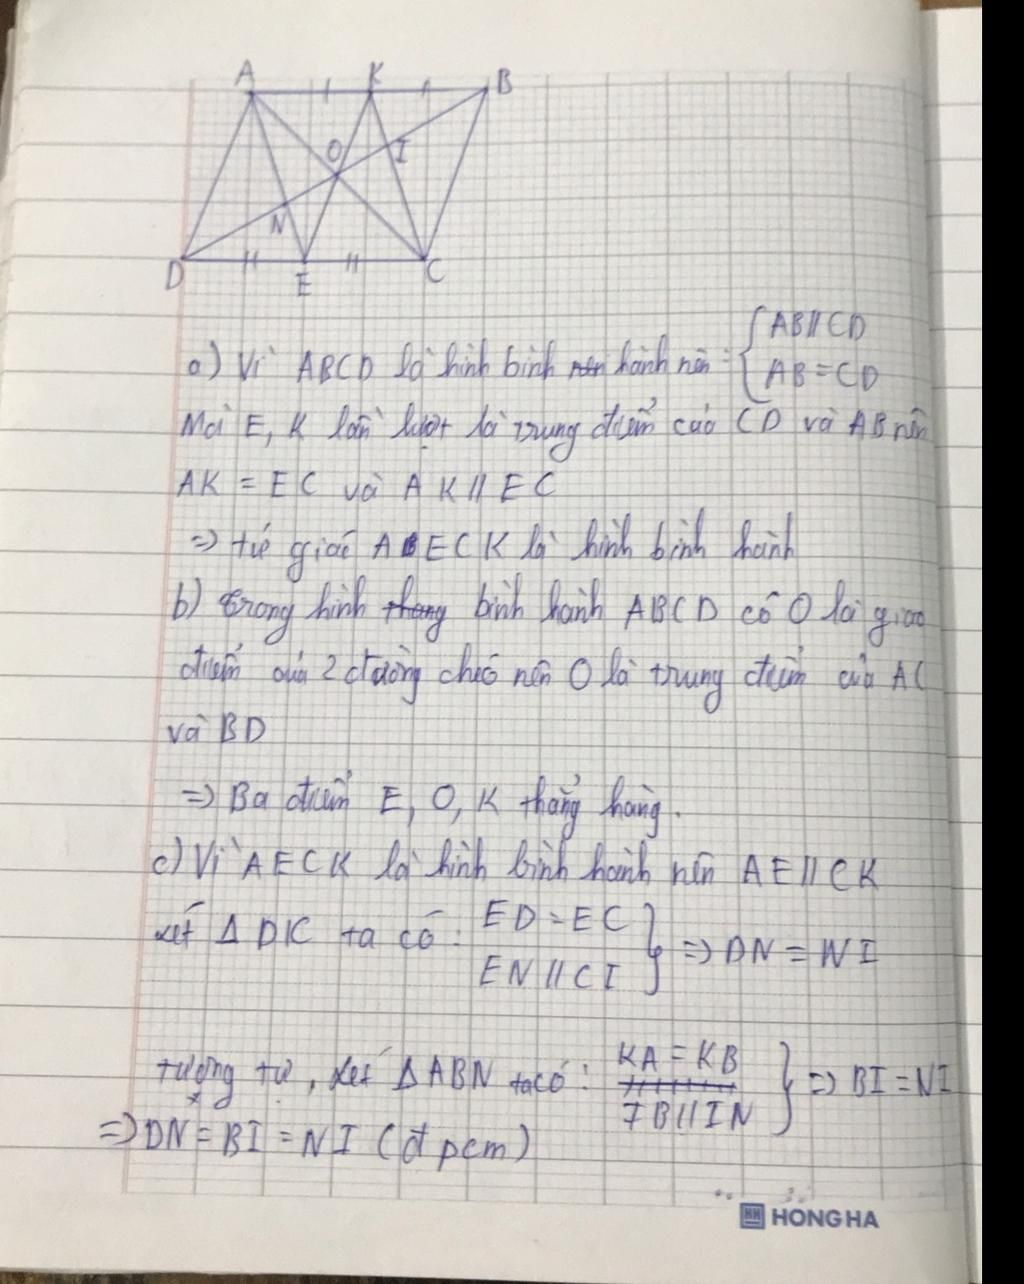 A K B
O I
N
D E C
a) Vì ABCD là hình bình hành nên : { AB // CD
AB = CD
Mà E, K lần lượt là trung điểm của CD và AB nên
AK = EC và AK // EC
=> tứ giác AECK là hình bình hành
b) Trong hình thang bình hành ABCD có O là giao
điểm của 2 đường chéo nên O là trung điểm của AC
và BD
=> Ba điểm E, O, K thẳng hàng.
c) Vì AECK là hình bình hành nên AE // CK
xét Δ DIC ta có : ED = EC
EN // CI } => DN = NI
tương tự, xét Δ ABN ta có : KA = KB
IB // IN } => BI = NI
=> DN = BI = NI (đpcm)
HONG HA